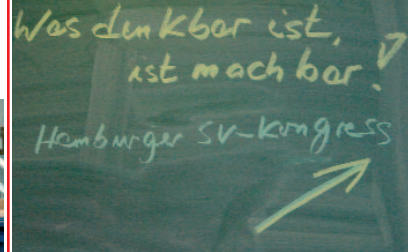 Was denkbar ist,
ist machbar!
Hamburger SV-Kongress